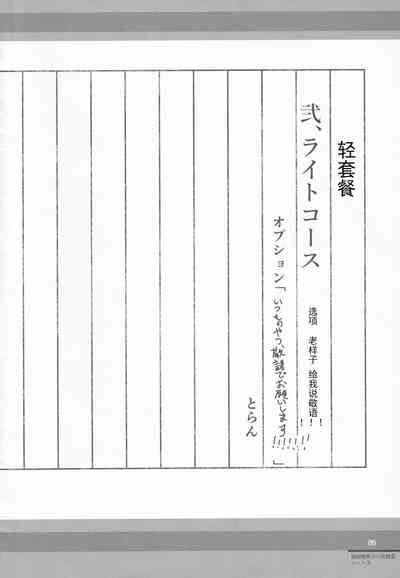 轻套餐
弐、ライトコース
选项 老样子 给我说敬语!!!
オプション「いつものやつ、敬語でお願いします!!!!!!」
とらん